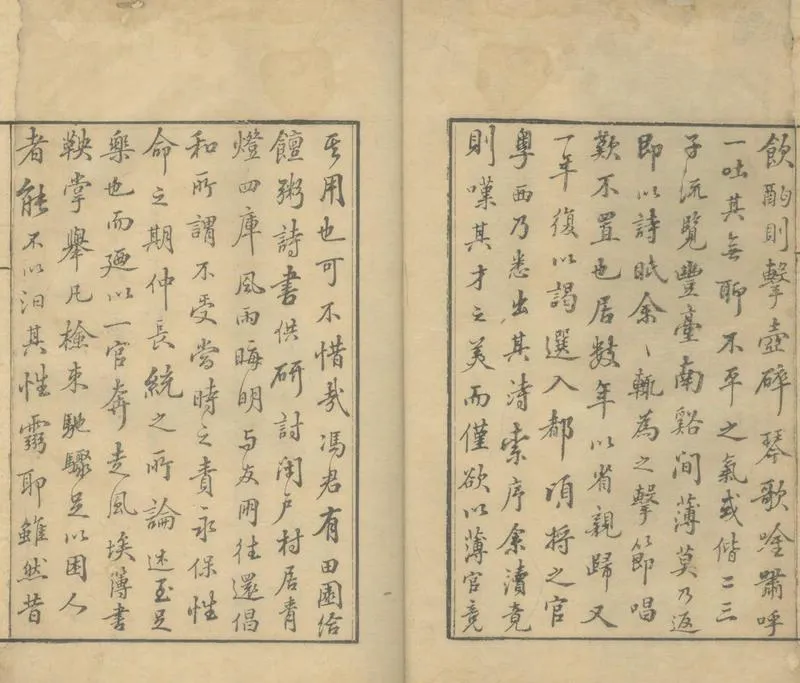 飲酣則擊壺碎琴歌唫嘯呼
一吐其無聊不平之氣或偕二三
子流覽豐臺南谿間薄莫乃返
即以詩眂余〻輒為之擊節唱
歎不置也居數年以省親歸又
一年復以謁選入都頃將之官
粵西乃悉出其詩索序余讀竟
則嘆其才之美而僅欲以薄官竟
其用也可不惜哉馮君有田園給
饘粥詩書供研討閉户村居青
燈四庫風雨晦明与友朋往還倡
和所謂不受當時之責永保性
命之期仲長統之所論述至足
樂也而廼以一官奔走風埃簿書
鞅掌舉凡檢束馳驟足以困人
者能不以汨其性靈耶雖然昔